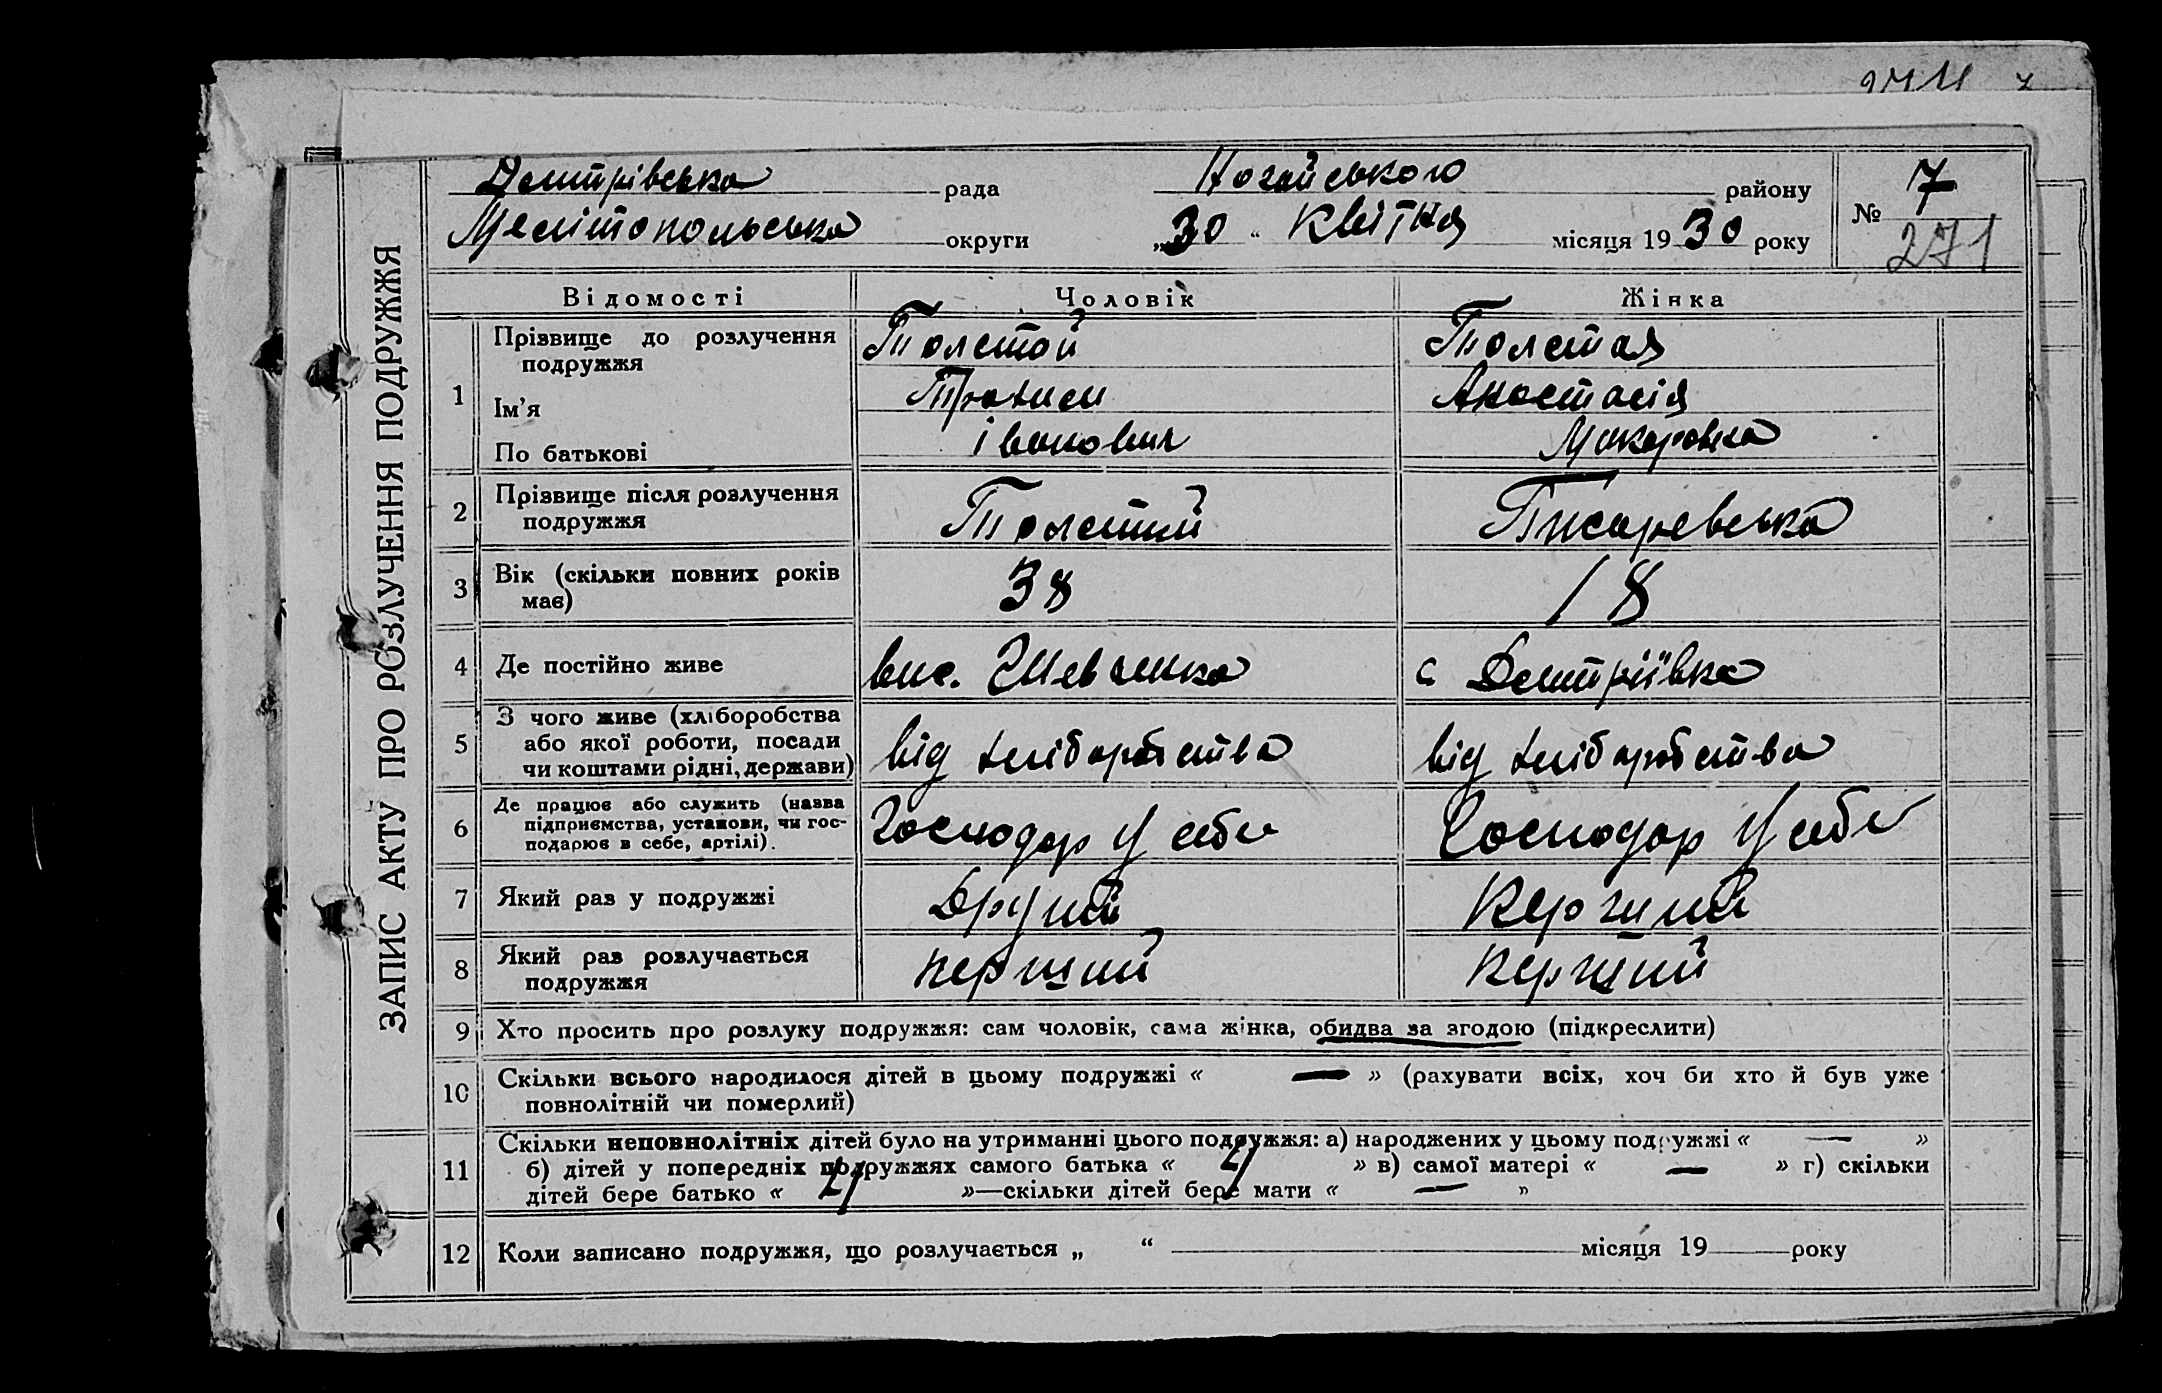 ЗАПИС АКТУ ПРО РОЗЛУЧЕННЯ ПОДРУЖЖЯ
Дмитрівська рада Ногайського району № 7
Мелітопольська округи „30“ Квітня місяця 1930 року 271
Відомості Чоловік Жінка
1 Прізвище до розлучення подружжя Толстой Толстая
Ім'я Трохим Анастасія
По батькові Іванович Макаровна
2 Прізвище після розлучення подружжя Толстий Писаревська
3 Вік (скільки повних років має) 38 18
4 Де постійно живе вис. Шевченка с Дмитріївка
5 З чого живе (хліборобства або якої роботи, посади чи коштами рідні, держави) від хліборобства від хліборобства
6 Де працює або служить (назва підприємства, установи, чи господарює в себе, артілі). Господар у себе Господар у себе
7 Який раз у подружжі Другий Перший
8 Який раз розлучається подружжя перший Перший
9 Хто просить про розлуку подружжя: сам чоловік, сама жінка, обидва за згодою (підкреслити)
10 Скільки всього народилося дітей в цьому подружжі « — » (рахувати всіх, хоч би хто й був уже
повнолітній чи померлий)
11 Скільки неповнолітніх дітей було на утриманні цього подружжя: а) народжених у цьому подружжі « — »
б) дітей у попередніх подружжях самого батька « 4 » в) самої матері « — » г) скільки
дітей бере батько « 4 »—скільки дітей бере мати « — »
12 Коли записано подружжя, що розлучається „ “ місяця 19 року